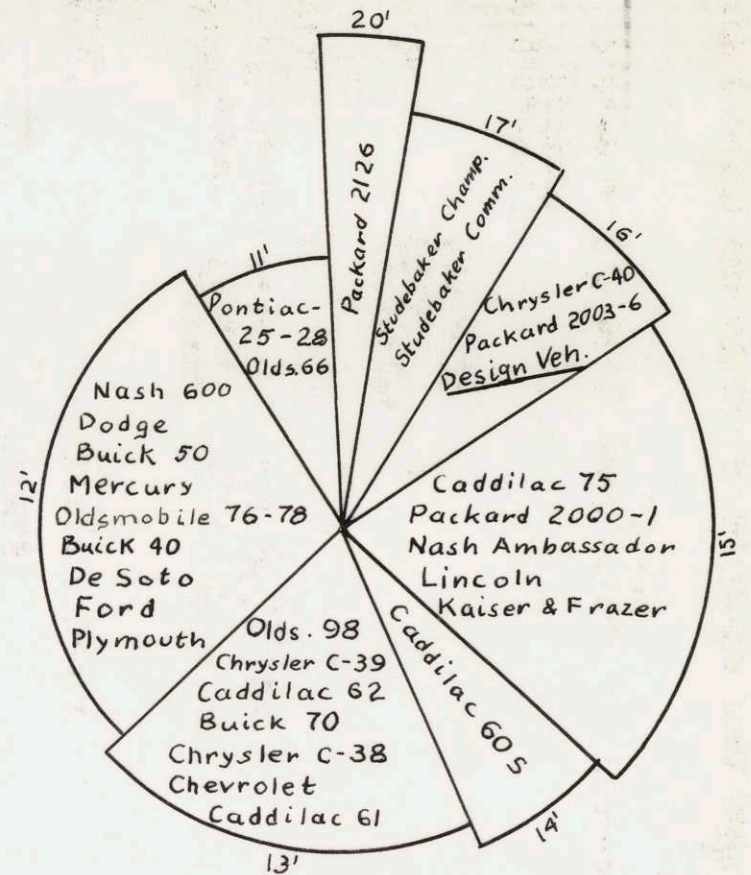 20'
Packard 2126
17'
Studebaker Champ.
Studebaker Comm.
16'
Chrysler C-40
Packard 2003-6
Design Veh.
15'
Caddilac 75
Packard 2000-1
Nash Ambassador
Lincoln
Kaiser & Frazer
14'
Caddilac 60 S
13'
Olds. 98
Chrysler C-39
Caddilac 62
Buick 70
Chrysler C-38
Chevrolet
Caddilac 61
12'
Nash 600
Dodge
Buick 50
Mercury
Oldsmobile 76-78
Buick 40
De Soto
Ford
Plymouth
11'
Pontiac-
25-28
Olds. 66